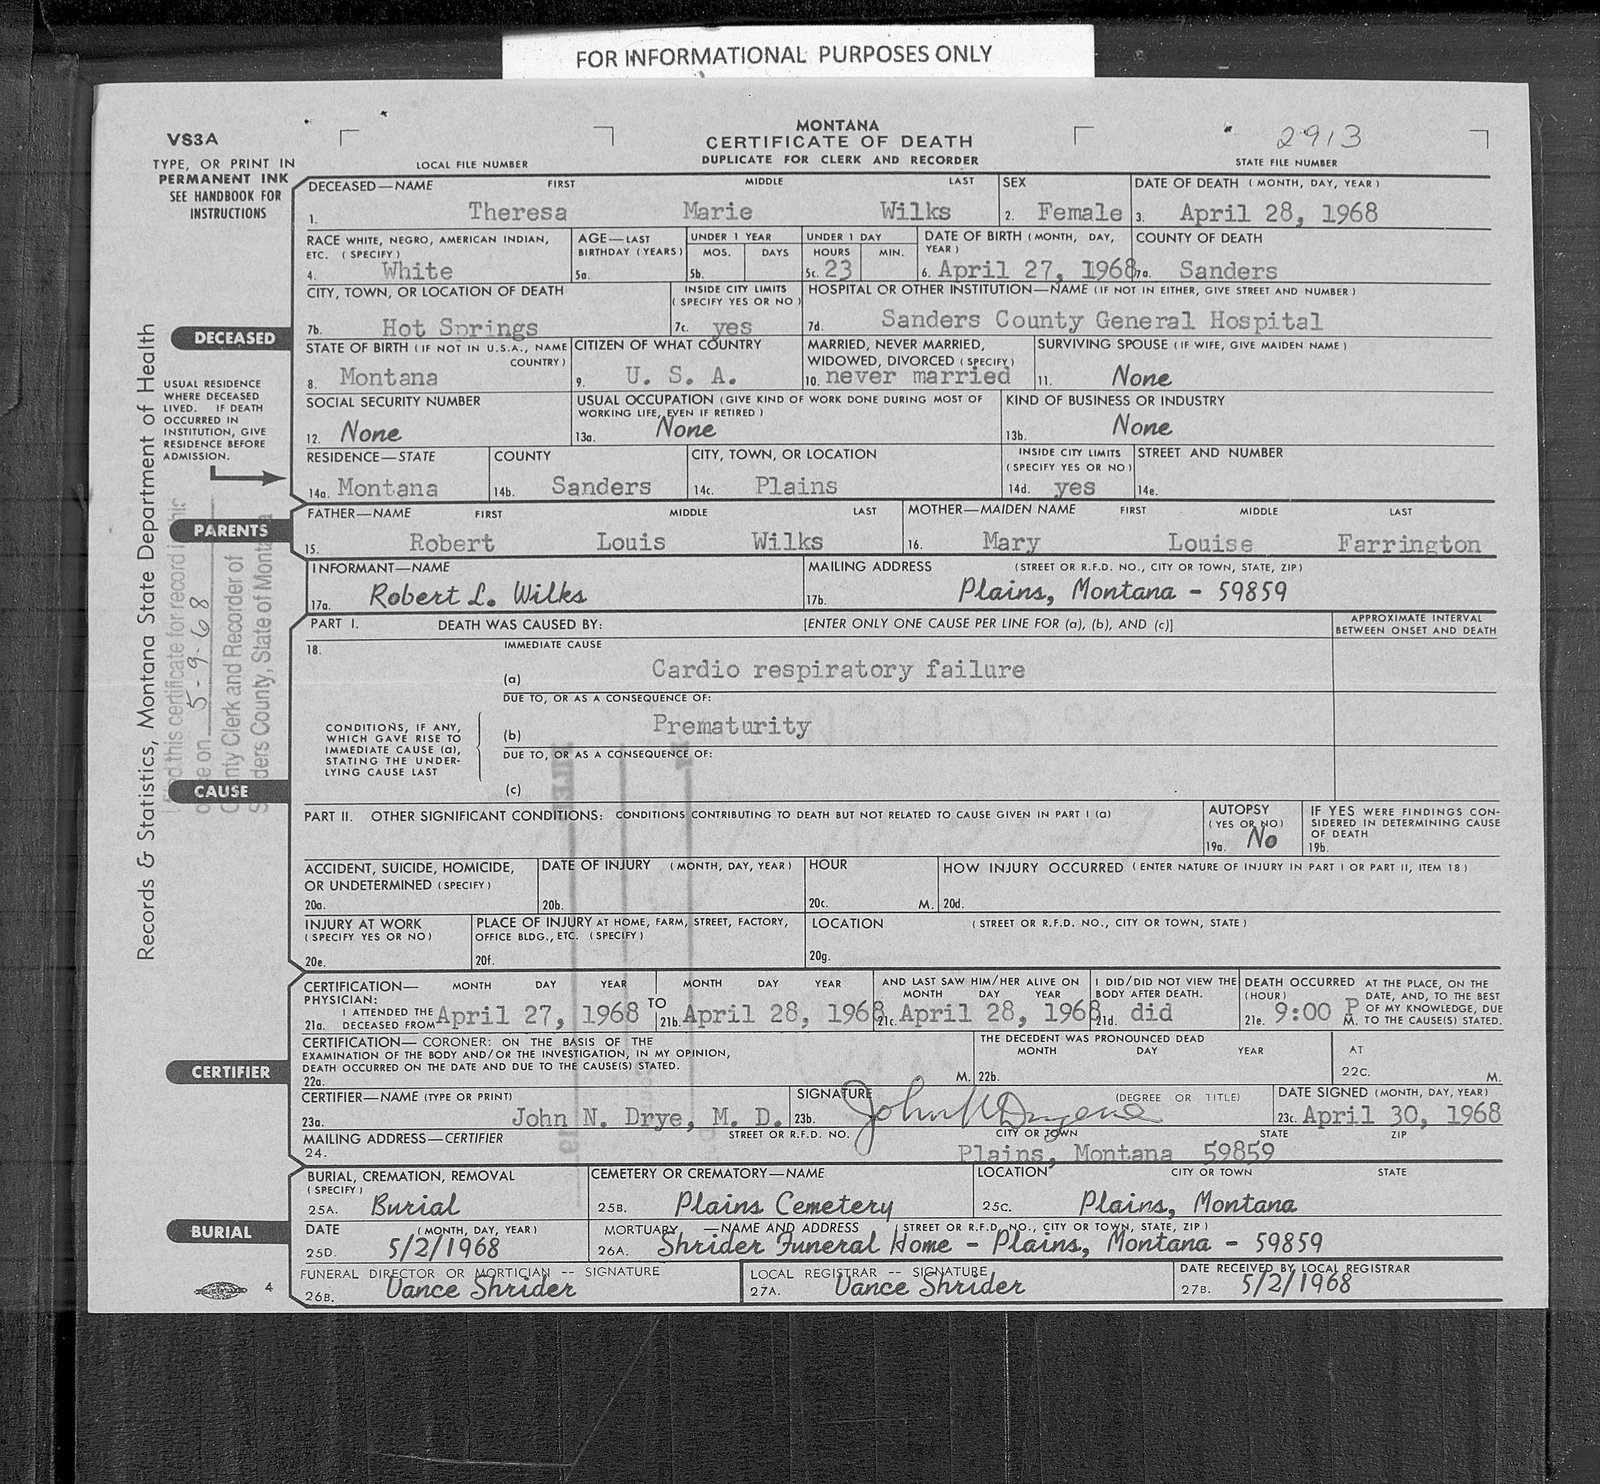 FOR INFORMATIONAL PURPOSES ONLY
VS3A
TYPE, OR PRINT IN
PERMANENT INK
SEE HANDBOOK FOR
INSTRUCTIONS
MONTANA
CERTIFICATE OF DEATH
DUPLICATE FOR CLERK AND RECORDER
LOCAL FILE NUMBER
2913
STATE FILE NUMBER
DECEASED—NAME FIRST MIDDLE LAST SEX DATE OF DEATH (MONTH, DAY, YEAR)
1. Theresa Marie Wilks 2. Female 3. April 28, 1968
RACE WHITE, NEGRO, AMERICAN INDIAN, ETC. (SPECIFY) AGE—LAST BIRTHDAY (YEARS) UNDER 1 YEAR MOS. DAYS UNDER 1 DAY HOURS MIN. DATE OF BIRTH (MONTH, DAY, YEAR) COUNTY OF DEATH
4. White 5a. 5b. 5c. 23 6. April 27, 1968 7a. Sanders
CITY, TOWN, OR LOCATION OF DEATH INSIDE CITY LIMITS (SPECIFY YES OR NO) HOSPITAL OR OTHER INSTITUTION—NAME (IF NOT IN EITHER, GIVE STREET AND NUMBER)
7b. Hot Springs 7c. yes 7d. Sanders County General Hospital
DECEASED
STATE OF BIRTH (IF NOT IN U.S.A., NAME COUNTRY) CITIZEN OF WHAT COUNTRY MARRIED, NEVER MARRIED, WIDOWED, DIVORCED (SPECIFY) SURVIVING SPOUSE (IF WIFE, GIVE MAIDEN NAME)
8. Montana 9. U. S. A. 10. never married 11. None
USUAL RESIDENCE
WHERE DECEASED
LIVED. IF DEATH
OCCURRED IN
INSTITUTION, GIVE
RESIDENCE BEFORE
ADMISSION.
SOCIAL SECURITY NUMBER USUAL OCCUPATION (GIVE KIND OF WORK DONE DURING MOST OF WORKING LIFE, EVEN IF RETIRED) KIND OF BUSINESS OR INDUSTRY
12. None 13a. None 13b. None
RESIDENCE—STATE COUNTY CITY, TOWN, OR LOCATION INSIDE CITY LIMITS (SPECIFY YES OR NO) STREET AND NUMBER
14a. Montana 14b. Sanders 14c. Plains 14d. yes 14e.
PARENTS
FATHER—NAME FIRST MIDDLE LAST MOTHER—MAIDEN NAME FIRST MIDDLE LAST
15. Robert Louis Wilks 16. Mary Louise Farrington
INFORMANT—NAME MAILING ADDRESS (STREET OR R.F.D. NO., CITY OR TOWN, STATE, ZIP)
17a. Robert L. Wilks 17b. Plains, Montana - 59859
Records & Statistics, Montana State Department of Health
this certificate for record in
on 5-9-68
County Clerk and Recorder of
Sanders County, State of Montana
PART I. DEATH WAS CAUSED BY: [ENTER ONLY ONE CAUSE PER LINE FOR (a), (b), AND (c)] APPROXIMATE INTERVAL BETWEEN ONSET AND DEATH
18. IMMEDIATE CAUSE
(a) Cardio respiratory failure
DUE TO, OR AS A CONSEQUENCE OF:
CONDITIONS, IF ANY,
WHICH GAVE RISE TO
IMMEDIATE CAUSE (a),
STATING THE UNDER-
LYING CAUSE LAST
(b) Prematurity
DUE TO, OR AS A CONSEQUENCE OF:
(c)
CAUSE
PART II. OTHER SIGNIFICANT CONDITIONS: CONDITIONS CONTRIBUTING TO DEATH BUT NOT RELATED TO CAUSE GIVEN IN PART I (a) AUTOPSY (YES OR NO) IF YES WERE FINDINGS CONSIDERED IN DETERMINING CAUSE OF DEATH
19a. No 19b.
ACCIDENT, SUICIDE, HOMICIDE, OR UNDETERMINED (SPECIFY) DATE OF INJURY (MONTH, DAY, YEAR) HOUR HOW INJURY OCCURRED (ENTER NATURE OF INJURY IN PART I OR PART II, ITEM 18)
20a. 20b. 20c. M. 20d.
INJURY AT WORK (SPECIFY YES OR NO) PLACE OF INJURY AT HOME, FARM, STREET, FACTORY, OFFICE BLDG., ETC. (SPECIFY) LOCATION (STREET OR R.F.D. NO., CITY OR TOWN, STATE)
20e. 20f. 20g.
CERTIFICATION—PHYSICIAN: MONTH DAY YEAR MONTH DAY YEAR AND LAST SAW HIM/HER ALIVE ON MONTH DAY YEAR I DID/DID NOT VIEW THE BODY AFTER DEATH. DEATH OCCURRED (HOUR) AT THE PLACE, ON THE DATE, AND, TO THE BEST OF MY KNOWLEDGE, DUE TO THE CAUSE(S) STATED.
21a. I ATTENDED THE DECEASED FROM April 27, 1968 TO 21b. April 28, 1968 21c. April 28, 1968 21d. did 21e. 9:00 P M.
CERTIFICATION—CORONER: ON THE BASIS OF THE EXAMINATION OF THE BODY AND/OR THE INVESTIGATION, IN MY OPINION, DEATH OCCURRED ON THE DATE AND DUE TO THE CAUSE(S) STATED. THE DECEDENT WAS PRONOUNCED DEAD MONTH DAY YEAR AT
22a. M. 22b. 22c. M.
CERTIFIER
CERTIFIER—NAME (TYPE OR PRINT) SIGNATURE (DEGREE OR TITLE) DATE SIGNED (MONTH, DAY, YEAR)
23a. John N. Drye, M. D. 23b. 23c. April 30, 1968
MAILING ADDRESS—CERTIFIER STREET OR R.F.D. NO. CITY OR TOWN STATE ZIP
24. Plains, Montana 59859
BURIAL, CREMATION, REMOVAL (SPECIFY) CEMETERY OR CREMATORY—NAME LOCATION CITY OR TOWN STATE
25A. Burial 25B. Plains Cemetery 25C. Plains, Montana
BURIAL
DATE (MONTH, DAY, YEAR) MORTUARY—NAME AND ADDRESS (STREET OR R.F.D. NO., CITY OR TOWN, STATE, ZIP)
25D. 5/2/1968 26A. Shrider Funeral Home - Plains, Montana - 59859
FUNERAL DIRECTOR OR MORTICIAN -- SIGNATURE LOCAL REGISTRAR -- SIGNATURE DATE RECEIVED BY LOCAL REGISTRAR
26B. Vance Shrider 27A. Vance Shrider 27B. 5/2/1968
4